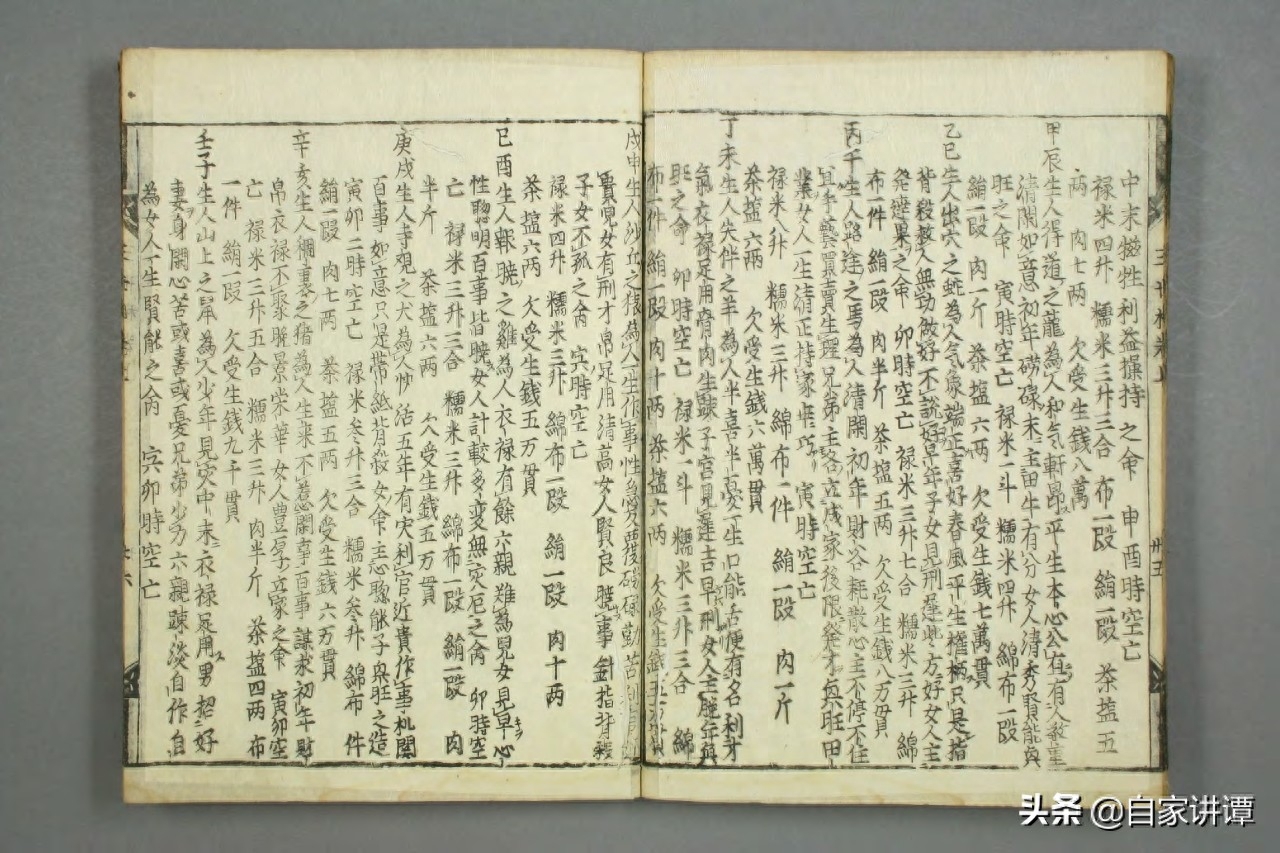 中末犠牲利益操持之命 申酉時空亡
禄米四升 糯米三升三合 布一段 絹一段 茶塩五
両 肉七両 欠受生錢八萬
甲辰生人得道之龍為人和気軒昂平生本心公直有人敬重
清閑如意初年磅礴末主田牛有八分女人清秀賢能與
旺之命 寅時空亡 禄米一斗 糯米四升 綿布一段
絹一段 肉一斤 茶塩六两 欠受生錢七萬貫
乙巳生人出穴之蛇為人気象端正喜好春風平生權柄只是指
背殺救人無功做好不說好早年子女見刑遲此方好女人主
発達果之命 卯時空亡 禄米三升七合 糯米三升 綿
布一件 絹一段 肉半斤 茶塩五两 欠受生錢八万貫
丙午生人路途之馬為人清閑初年財谷耗散心主不停不住
宜手藝買賣生理兄弟主各立成家後限発才與旺田
業女人一生清正持家半巧 寅時空亡
禄米八升 糯米三升 綿布一件 絹一段 肉一斤
茶塩六两 欠受生錢六萬貫
丁未生人失伴之羊為人半喜半憂一生口能舌便有名利才
氣衣禄足用骨肉生疎子宮見遲吉早刑女人主晩年與
旺之命 卯時空亡 禄米一斗 糯米三升三合 綿
布一件 絹一段 肉十両 茶塩六两 欠受生錢五
戊申生人沙丘之猿為人一生作事性急反覆磅礴勤苦
賈兒女有刑才帛足用清高女人賢良曉事針指背殺
子女不孤之命 寅時空亡
禄米四升 糯米三升 綿布一段 絹一段 肉十两
茶塩六两 欠受生錢五万貫
己酉生人報曉之雞為人衣禄有餘六親難為兒女見早心
性聰明百事皆曉女人計較多変無災厄之命 卯時空
亡 禄米三升三合 糯米三升 綿布一段 絹一段 肉
半斤 茶塩六两 欠受生錢五万貫
庚戌生人寺觀之犬為人妙活五年有灾利官近貴作事机関
百事如意只是帯紙背殺女命主心聰能子與旺之造
寅卯二時空亡 禄米叁升三合 糯米叁升 綿布一件
絹一段 肉七两 茶塩五两 欠受生錢六万貫
辛亥生人禰事之猪為人生来不惹閑事百事謀求初年財
帛衣禄不聚晩景榮華女人豊厚立家之命 寅卯空
亡 禄米三升五合 糯米三升 肉半斤 茶塩四两 布
一件 絹一段 欠受生錢九千貫
壬子生人山上之鼠為人少年見灾中末衣禄足用男招好
妻身閑心苦或喜或憂兄弟少力六親踈淡自作自
為女人一生賢能之命 寅卯時空亡
三世相卷上 卅五
頭条 @自家讲谭